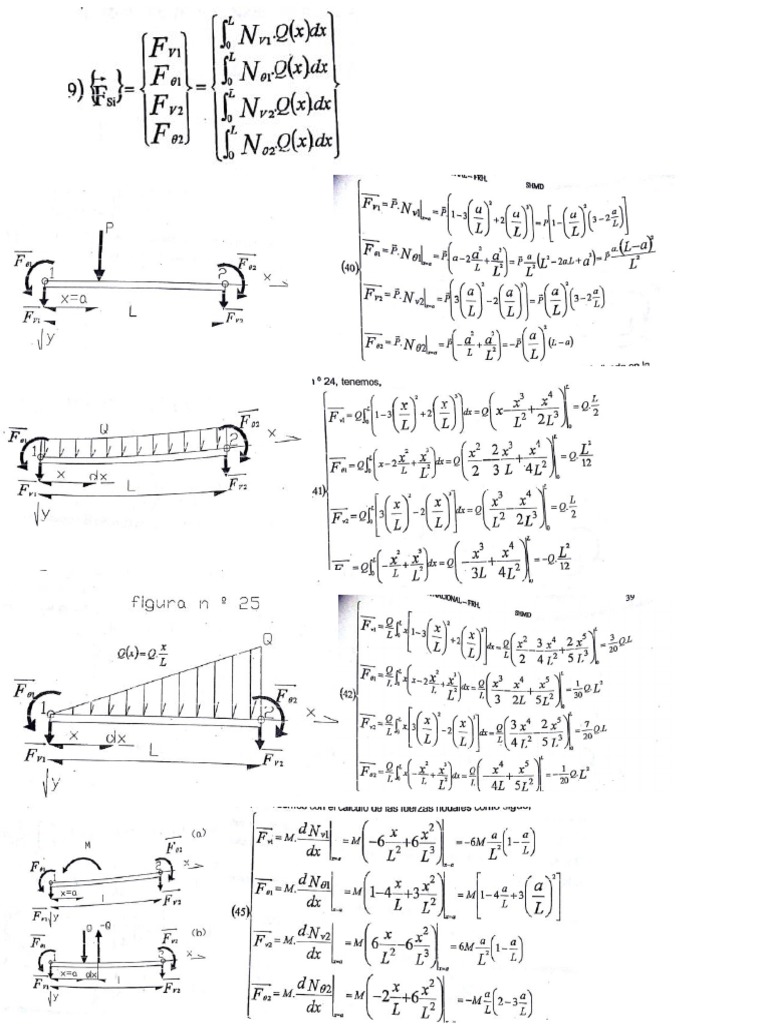 9) {F⃗_Si} = {F_V1, F_θ1, F_V2, F_θ2} = {∫₀ᴸ N_V1.Q(x)dx, ∫₀ᴸ N_θ1.Q(x)dx, ∫₀ᴸ N_V2.Q(x)dx, ∫₀ᴸ N_θ2.Q(x)dx}
P
F_θ1 1 2 F_θ2 x
x=a L
F_V1 F_V2
y
FRH.
SHMD
(40)
F_V1 = P.N_V1|x=a = P[1-3(a/L)²+2(a/L)³] = P[1-(a/L)²(3-2a/L)]
F_θ1 = P.N_θ1|x=a = P(a-2a²/L+a³/L²) = P a/L²(L²-2aL+a²) = P a.(L-a)²/L²
F_V2 = P.N_V2|x=a = P[3(a/L)²-2(a/L)³] = P(a/L)²(3-2a/L)
F_θ2 = P.N_θ2|x=a = P(-a²/L+a³/L²) = -P(a/L)²(L-a)
n º 24, tenemos,
Q
F_θ1 1 2 F_θ2 x
x dx
F_V1 L F_V2
y
41)
F_V1 = Q∫₀ᴸ[1-3(x/L)²+2(x/L)³]dx = Q(x-x³/L²+x⁴/2L³)|₀ᴸ = Q.L/2
F_θ1 = Q∫₀ᴸ(x-2x²/L+x³/L²)dx = Q(x²/2-2x³/3L+x⁴/4L²)|₀ᴸ = Q.L²/12
F_V2 = Q∫₀ᴸ[3(x/L)²-2(x/L)³]dx = Q(x³/L²-x⁴/2L³)|₀ᴸ = Q.L/2
F = Q∫₀ᴸ(-x²/L+x³/L²)dx = Q(-x³/3L+x⁴/4L²)|₀ᴸ = -Q.L²/12
figura n º 25
Q(x)=Q.x/L Q
F_θ1 1 2 F_θ2 x
x dx
F_V1 L F_V2
y
NACIONAL-FRH.
SHMD
39
(42)
F_V1 = Q/L∫₀ᴸ x[1-3(x/L)²+2(x/L)³]dx = Q/L(x²/2-3x⁴/4L²+2x⁵/5L³)|₀ᴸ = 3/20 Q.L
F_θ1 = Q/L∫₀ᴸ x(x-2x²/L+x³/L²)dx = Q/L(x³/3-x⁴/2L+x⁵/5L²)|₀ᴸ = 1/30 Q.L²
F_V2 = Q/L∫₀ᴸ x[3(x/L)²-2(x/L)³]dx = Q/L(3x⁴/4L²-2x⁵/5L³)|₀ᴸ = 7/20 Q.L
F_θ2 = Q/L∫₀ᴸ x(-x²/L+x³/L²)dx = Q/L(-x⁴/4L+x⁵/5L²)|₀ᴸ = -1/20 Q.L²
con el cálculo de las fuerzas nodales como sigue,
M F_θ2 (a)
F_θ1 1 2 x
x=a
F_V1 y F_V2
Q -Q (b)
F_θ1 x
x=a dx
F_V1 F_V2
y
(45)
F_V1 = M.dN_V1/dx|x=a = M(-6x/L²+6x²/L³)|x=a = -6M a/L²(1-a/L)
F_θ1 = M.dN_θ1/dx|x=a = M(1-4x/L+3x²/L²)|x=a = M[1-4a/L+3(a/L)²]
F_V2 = M.dN_V2/dx|x=a = M(6x/L²-6x²/L³)|x=a = 6M a/L²(1-a/L)
F_θ2 = M.dN_θ2/dx|x=a = M(-2x/L+6x²/L²)|x=a = -M a/L(2-3a/L)